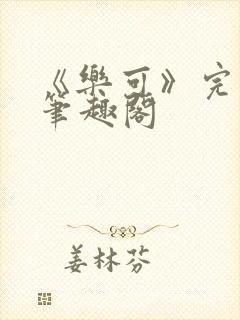 《樂可》完
筆趣閣
姜林芬